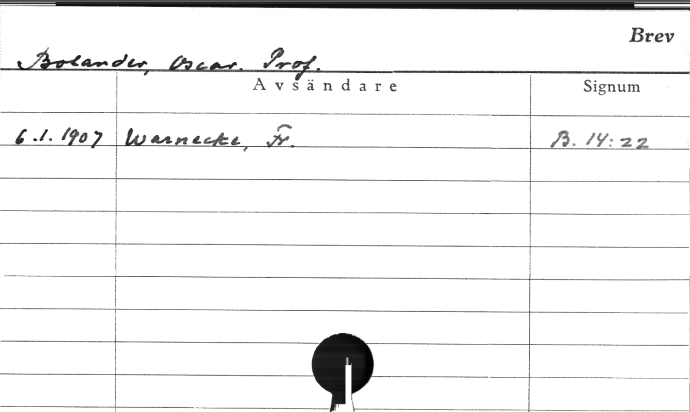 Brev
Bolander, Oscar. Prof.
Avsändare Signum
6.1.1907 Warnecke, Fr. B. 14:22